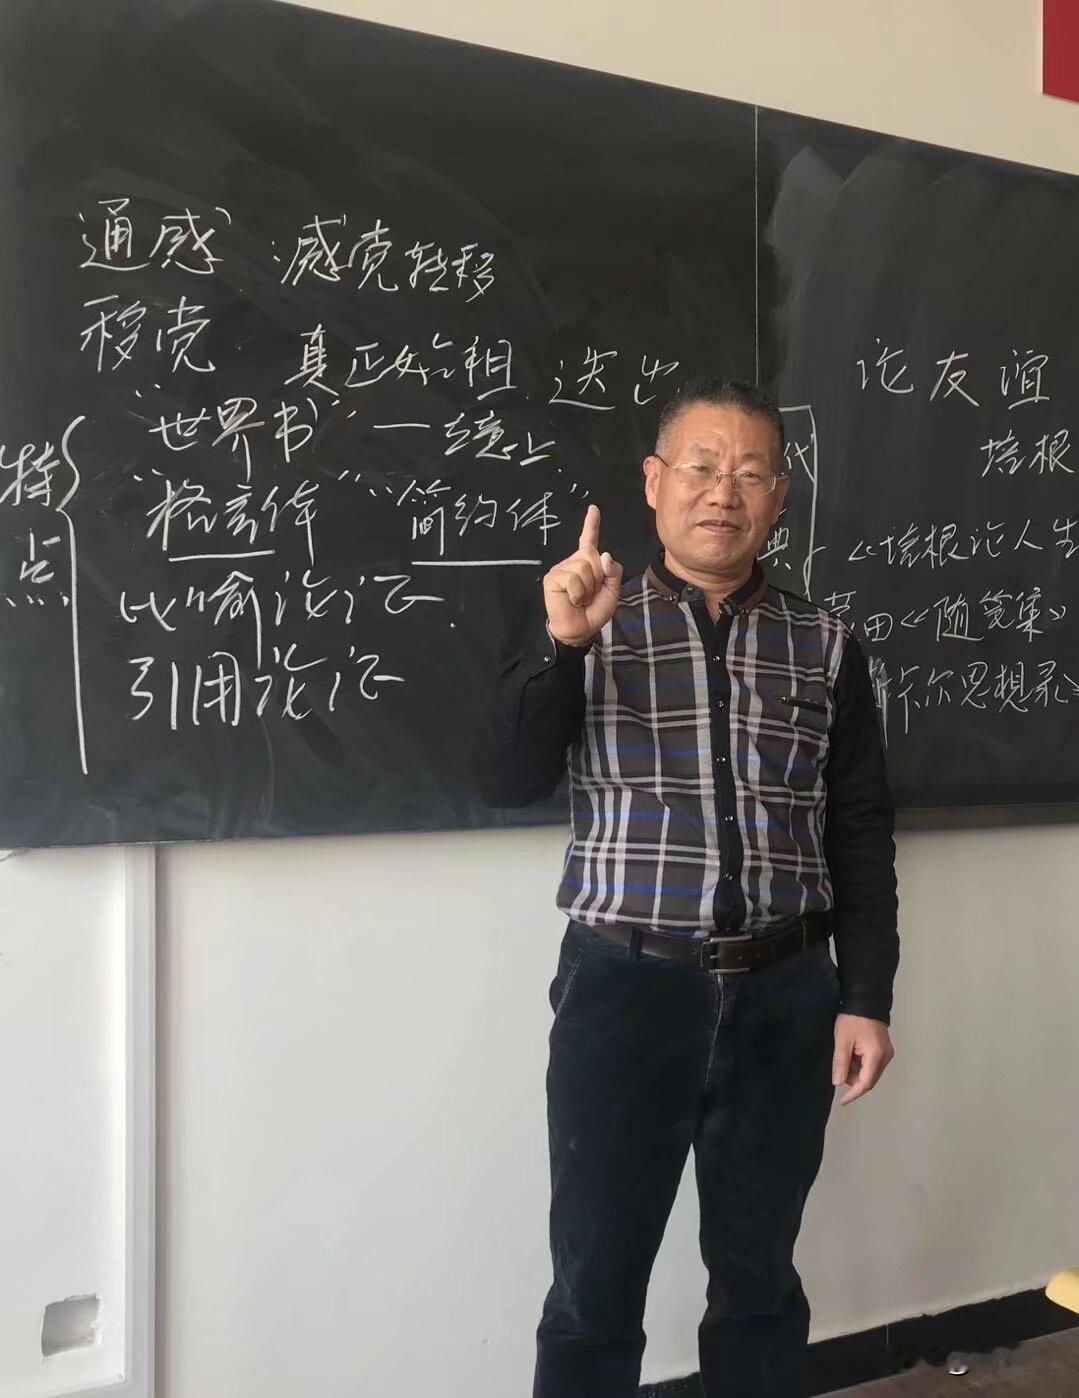 通感：感觉转移
移觉
真正始祖 迭出
特点
"世界书"——立意上
"格言体" "简约体"
比喻论证
引用论证
论友谊
培根
代
典
《培根论人生
田《随笔集》
卡尔思想录》